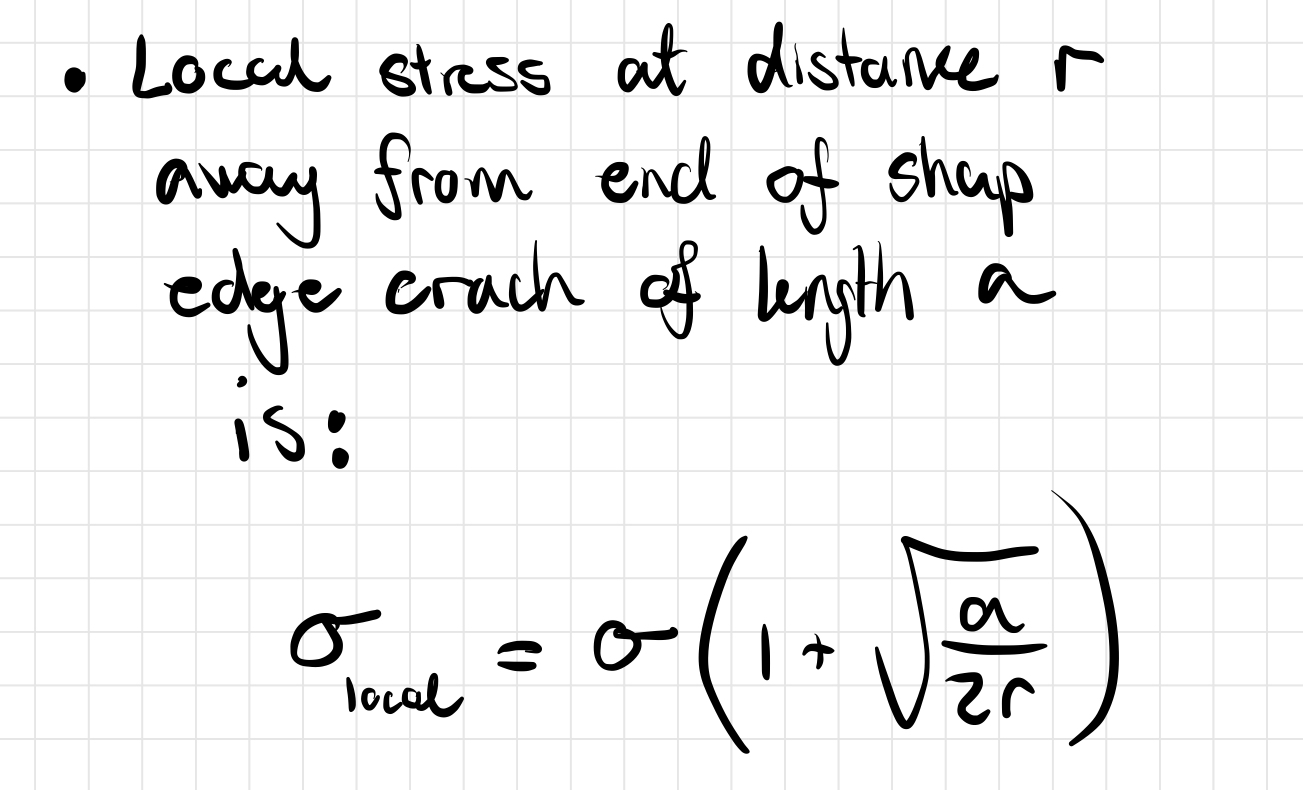 • Local stress at distance r
away from end of shap
edge crack of length a
is:
σ_local = σ(1 + √(a/2r))